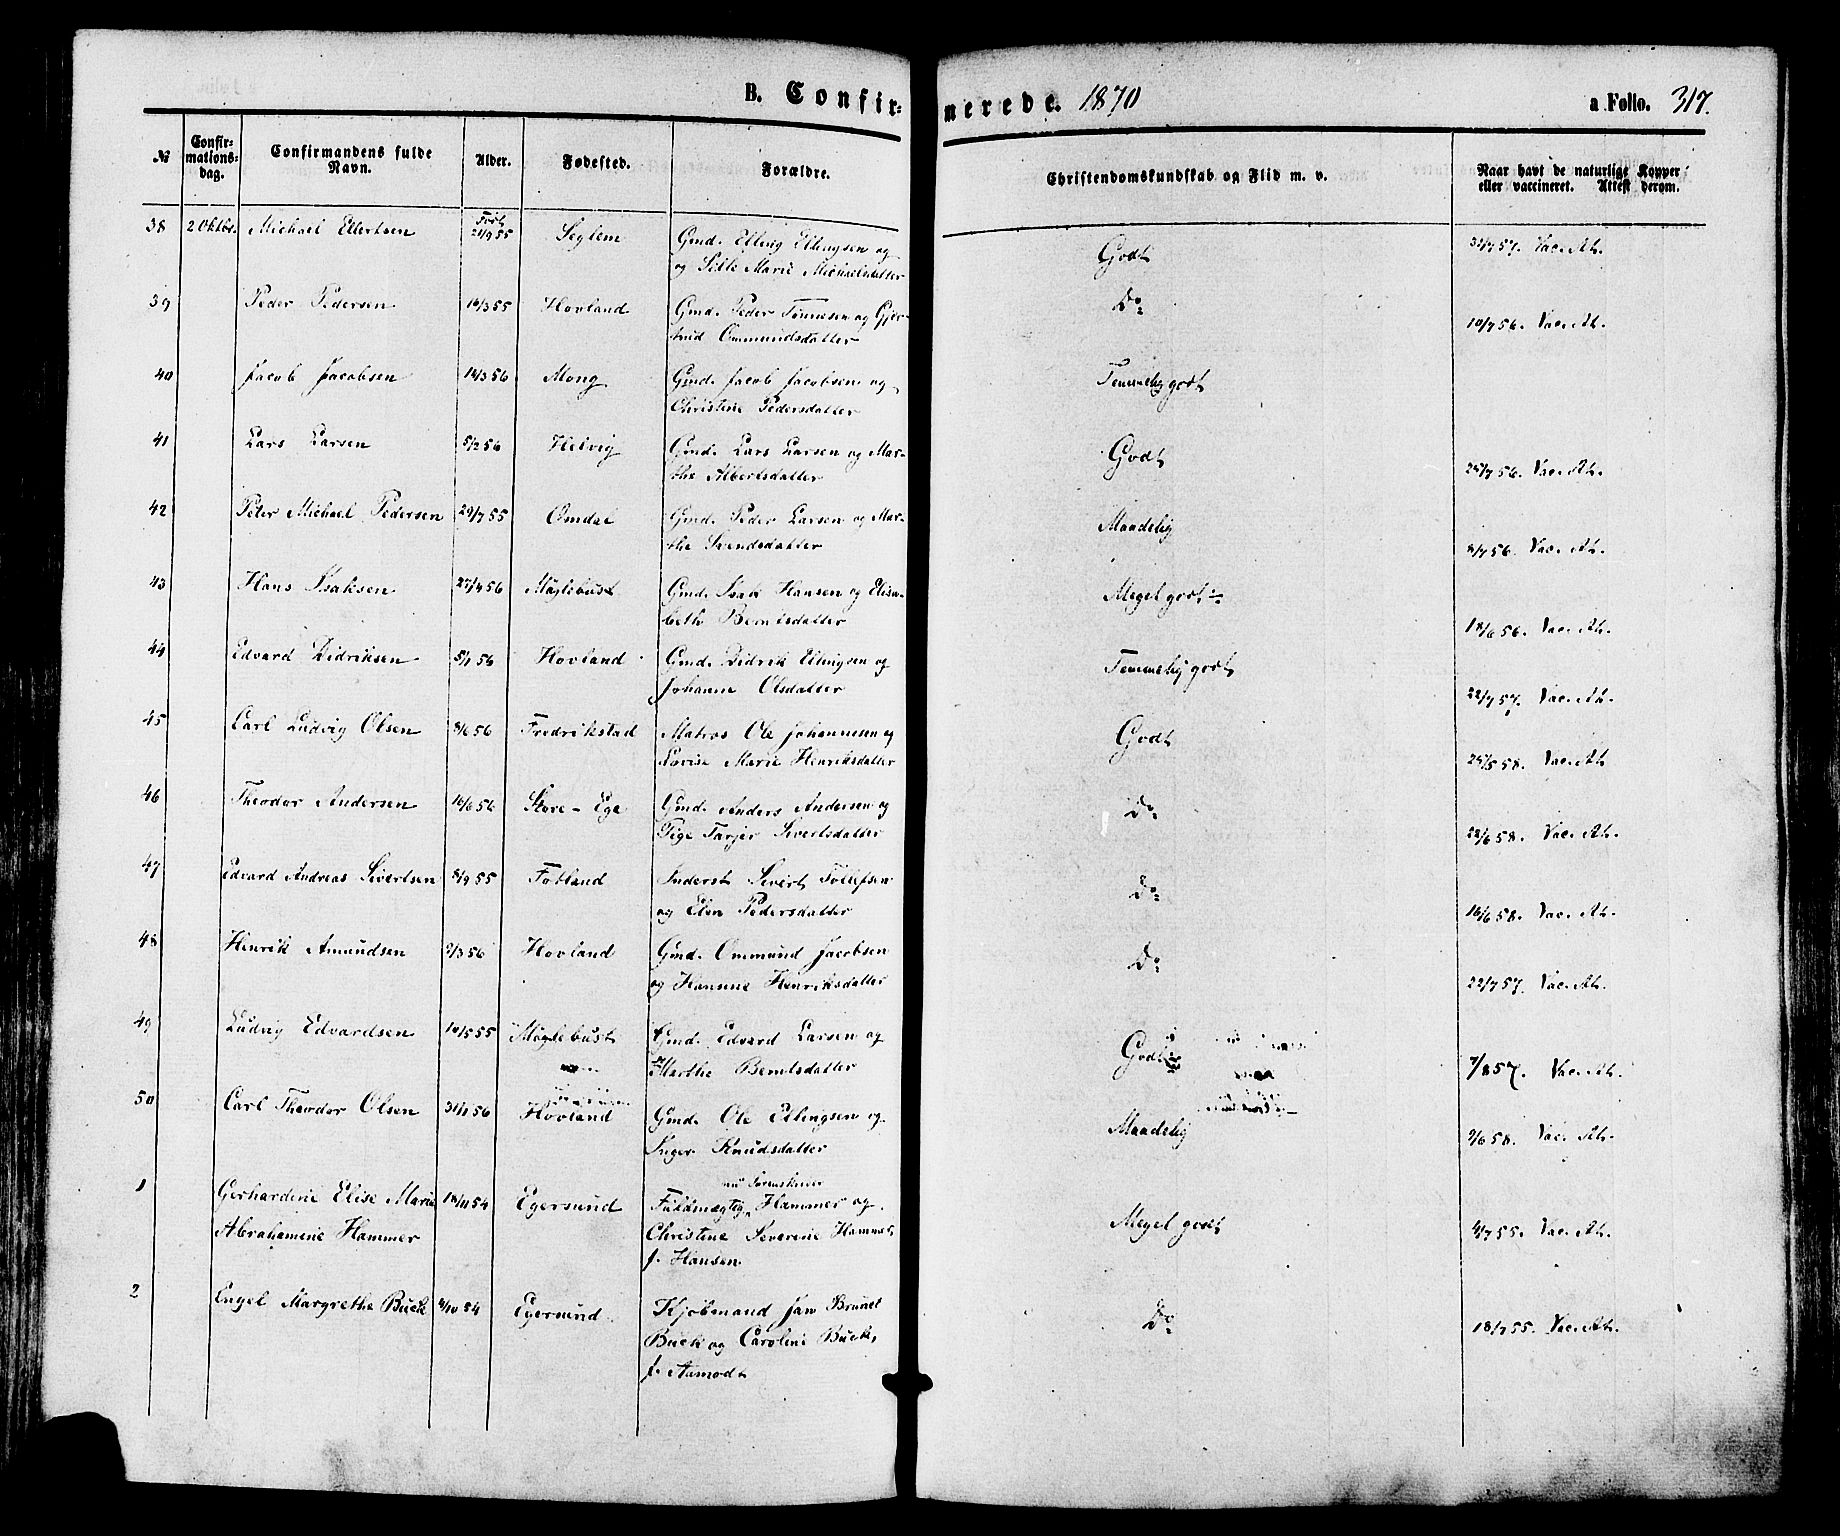 B. Confir-merede. 1870 a Folio. 317.
№ Confir-mations-dag. Confirmandens fulde Navn. Alder. Fødested. Forældre. Christendomskundskab og Flid m. v. Naar havt de naturlige Kopper eller vaccineret. Attest derom.
38 2 Oktbr. Michael Ellertsen Født 21/9 55 Seglem Gmd. Elling Ellingsen og Godt 31/7 57. Vac. At.
og Sille Marie Michaelsdatter
39 Peder Pedersen 16/3 55 Hovland Gmd. Peder Tønnesen og Gjer- Do 10/7 56. Vac. At.
trud Ommundsdatter
40 Jacob Jacobsen 14/3 56 Mong Gmd. Jacob Jacobsen og Temmelig godt
Christine Pedersdatter
41 Lars Larsen 5/2 56 Helvig Gmd. Lars Larsen og Mar- Godt 24/7 56. Vac. At.
the Albertsdatter
42 Peter Michael Pedersen 29/7 55 Omdal Gmd. Peder Larsen og Mar- Maadelig 8/7 56. Vac. At.
the Svendsdatter
43 Hans Isaksen 27/4 56 Møglebust Gmd. Isak Hansen og Elisa- Meget godt ÷ 18/6 56. Vac. At.
beth Berntsdatter
44 Edvard Didriksen 5/1 56 Hovland Gmd. Didrik Ellingsen og Temmelig godt 22/7 57. Vac. At.
Johanne Olsdatter
45 Carl Ludvig Olsen 8/6 56 Fredrikstad Matros Ole Johannesen og Godt 24/5 58. Vac. At
Lovise Marie Henriksdatter
46 Theodor Andersen 16/6 56 Store-Ege Gmd. Anders Andersen og Do 22/6 58. Vac. At.
Pige Tarjer Sivertsdatter
47 Edvard Andreas Sivertsen 8/9 55 Fotland Inderst Sivert Tollefsen Do 16/6 58. Vac. At.
og Elen Pedersdatter
48 Henrik Amundsen 9/3 56 Hovland Gmd. Ommund Jacobsen Do 22/7 57. Vac. At.
og Hansine Henriksdatter
49 Ludvig Edvardsen 14/5 55 Møglebust Gmd. Edvard Larsen og Godt 7/8 57. Vac. At.
Marthe Berntsdatter
50 Carl Theodor Olsen 31/1 56 Hovland Gmd. Ole Ellingsen og Maadelig 9/6 58. Vac. At.
Inger Knudsdatter
1 Gerhardine Elise Marie 18/11 54 Egersund Fuldmægtig Hammer og Meget godt 4/7 55. Vac. At.
Abrahamine Hammer Christine Severine Hammer
f. Hansen
2 Engel Margrethe Buck 8/10 54 Egersund Kjøbmand Jan Brunet Do 18/7 55. Vac. At.
Buck og Caroline Buck,
f. Aamodt